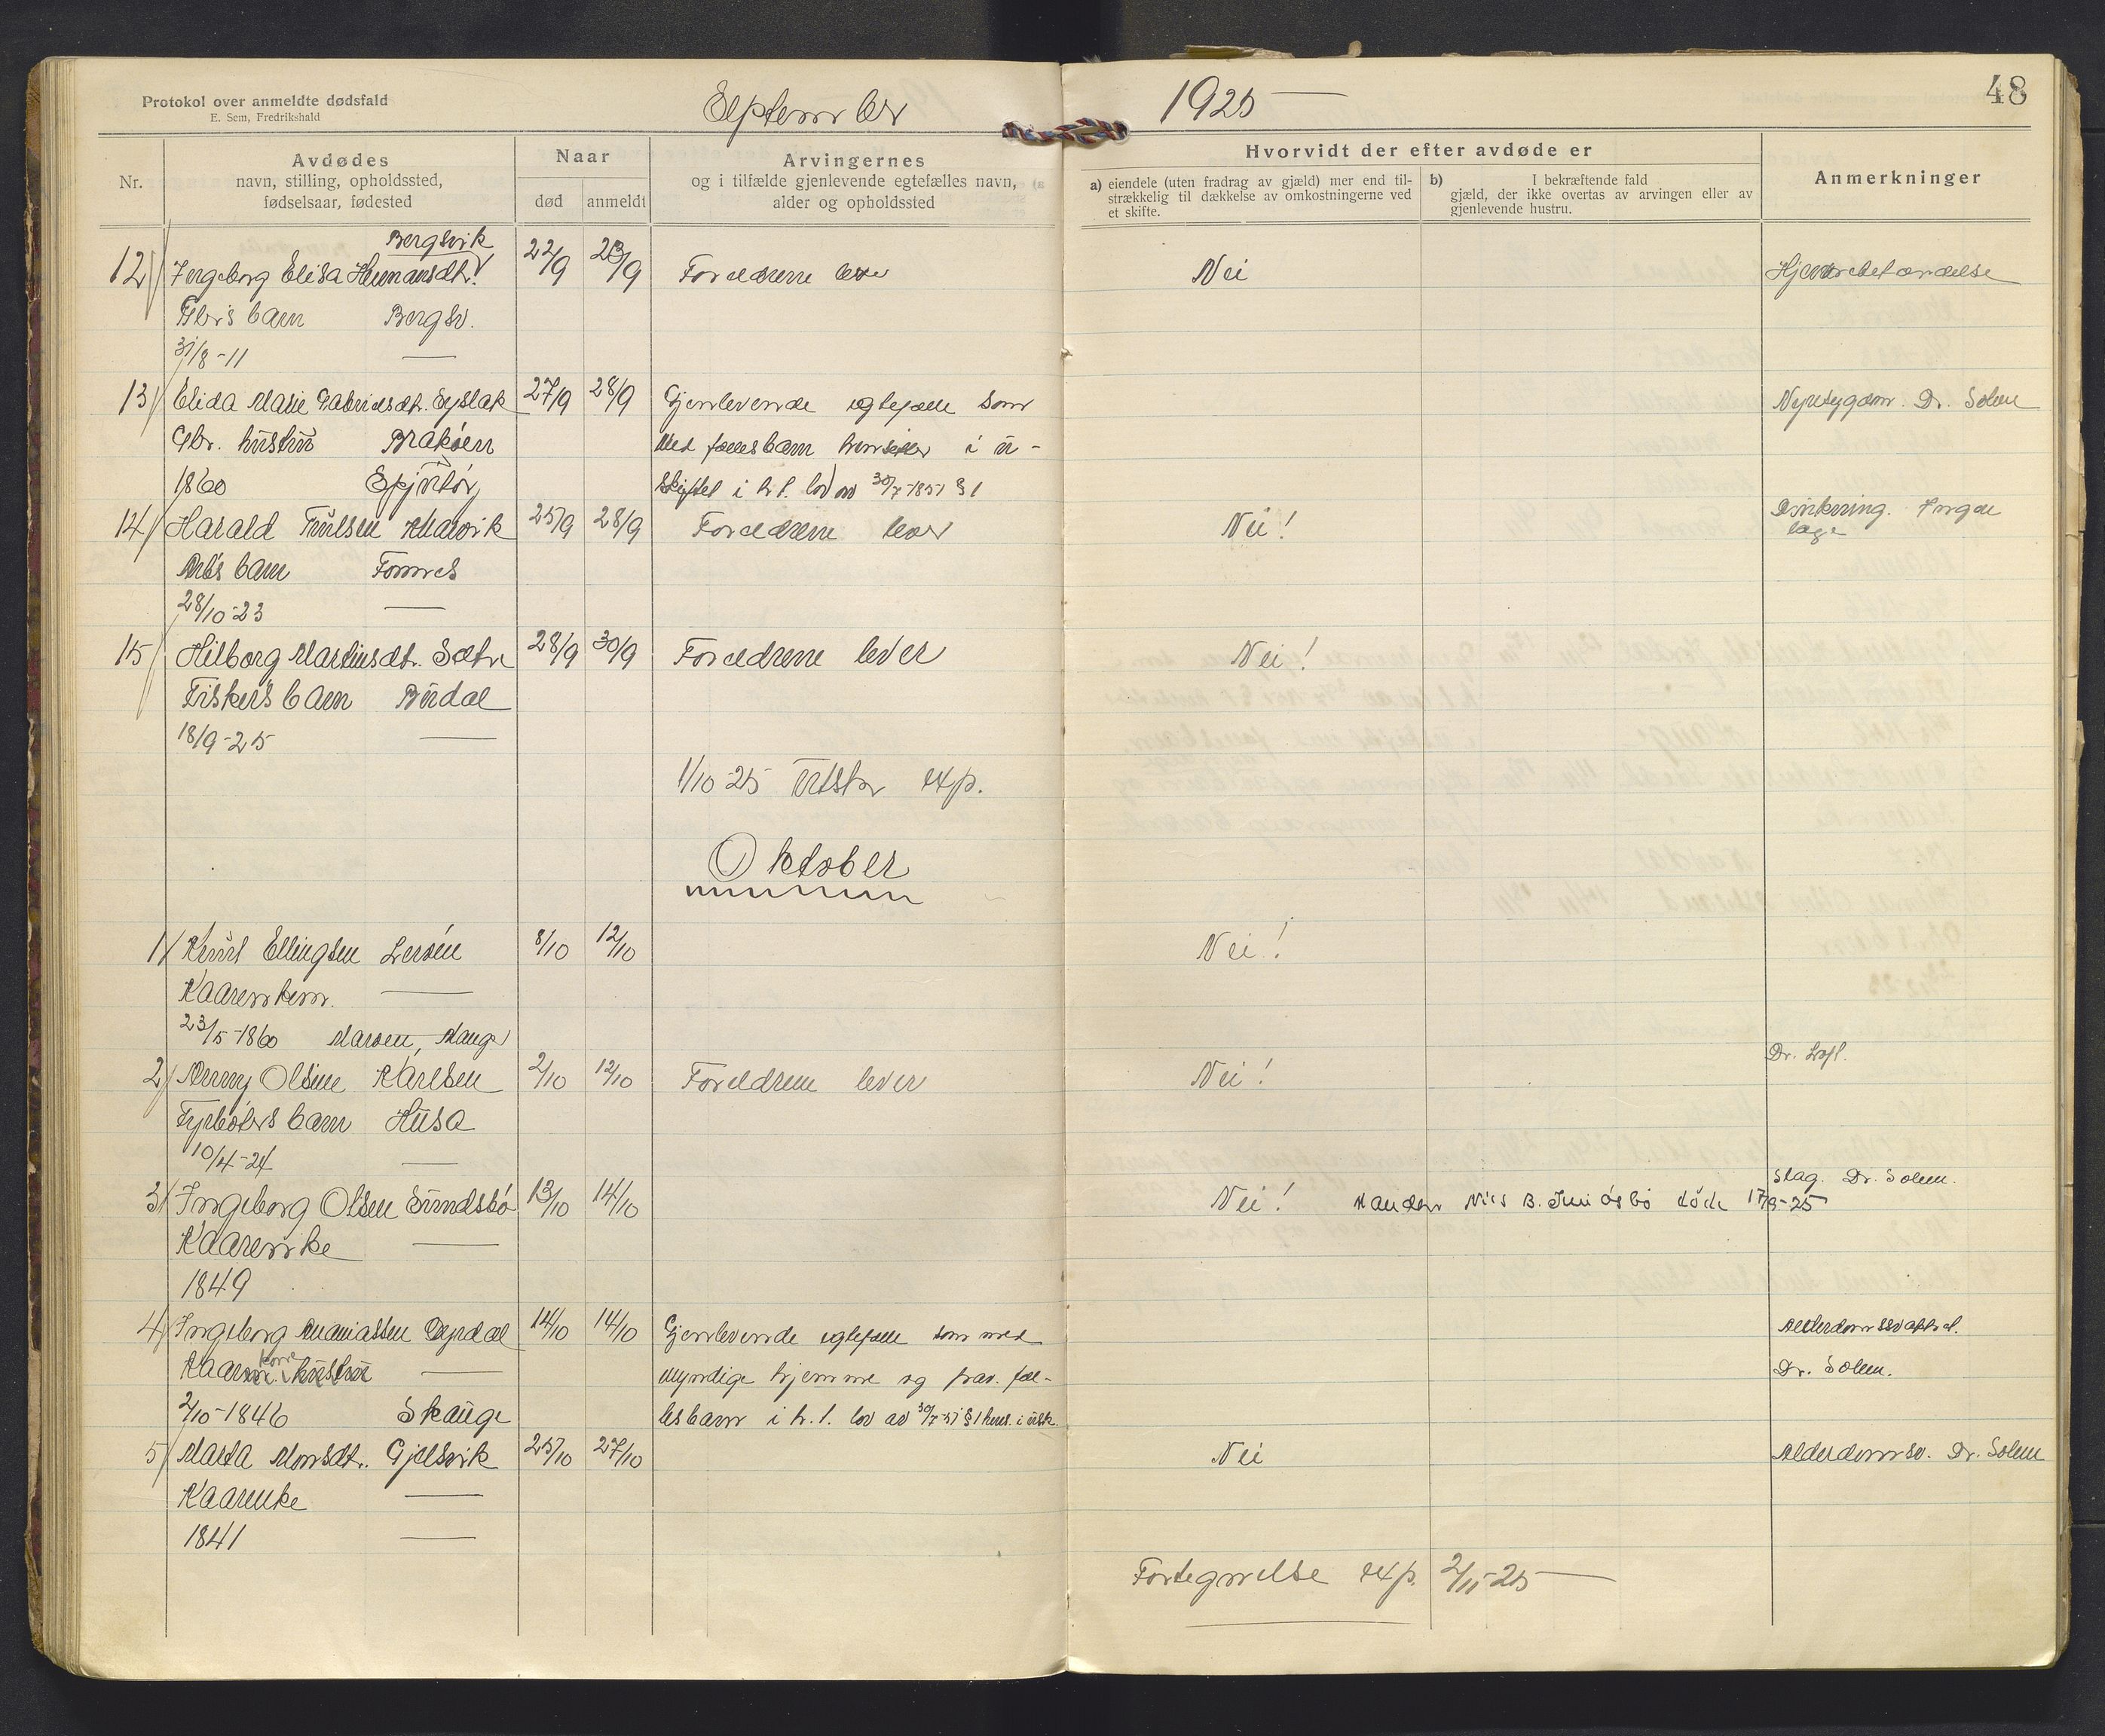 Protokol over anmeldte dødsfald
E. Sem, Fredrikshald
September
1925
48
Nr.
Avdødes
navn, stilling, opholdssted,
fødselsaar, fødested
Naar
død
anmeldt
Arvingernes
og i tilfælde gjenlevende egtefælles navn,
alder og opholdssted
Hvorvidt der efter avdøde er
a) eiendele (uten fradrag av gjæld) mer end til-
strækkelig til dækkelse av omkostningerne ved
et skifte.
b) I bekræftende fald
gjæld, der ikke overtas av arvingen eller av
gjenlevende hustru.
Anmerkninger
Bergsvik
12/ Ingeborg Elisa Hermansdt. 22/9 23/9 Forældrene lever Nei Hjernebetændelse
Gbrs barn Bergsv.
31/8-11 —
13/ Elida Marie Gabrielsdt. 27/9 28/9 Gjenlevende egtefælle som Nyresygdom. Dr. Solem
Gbr. hustru Brakøen
med fælesbarn hensitter i u-
1860
skiftet i h.t. lov av 30/7-1851 §1
14/ Harald Trulsen 25/9 28/9 Forældrene lever Nei! Drukning. Ingen
læge
Arbs barn Fonnes
28/10-23 —
15/ Hilborg Martinsdt. Sætre 28/9 30/9 Forældrene lever Nei!
Fiskers barn Burdal
18/9-25 —
1/10-25 Utskr exp.
Oktober
1/ Knut Ellingsen Lerøen 8/10 12/10 Nei!
Kaaremkem. —
23/5-1860 Marøen, Mange
2/ Anny Olsine Karlsen 2/10 12/10 Forældrene lever Nei! Dr. Loft.
Fyrbøters barn Husa
10/4-24 —
3/ Ingeborg Olsen Sundsbø 13/10 14/10 Nei! Manden Nils B. døde 17/9-25
Slag. Dr. Solem.
Kaaremke —
1849
4/ Ingeborg Ananiassen Dyrdal 14/10 14/10 Gjenlevende egtefælle som med Alderdomssvakhet.
Kaarm. kone hustru —
myndige hjemme og frav. fæl- Dr. Solem.
2/10-1846 Skauge
lesbarn i h.t. lov av 30/7-51 §1 hens. i usk.
5/ Marta Monsdt. Gjelsvik 25/10 27/10 Nei Alderdomsv. Dr. Solem
Kaaremke —
1841 —
Fortegnelse exp. 2/11-25 —